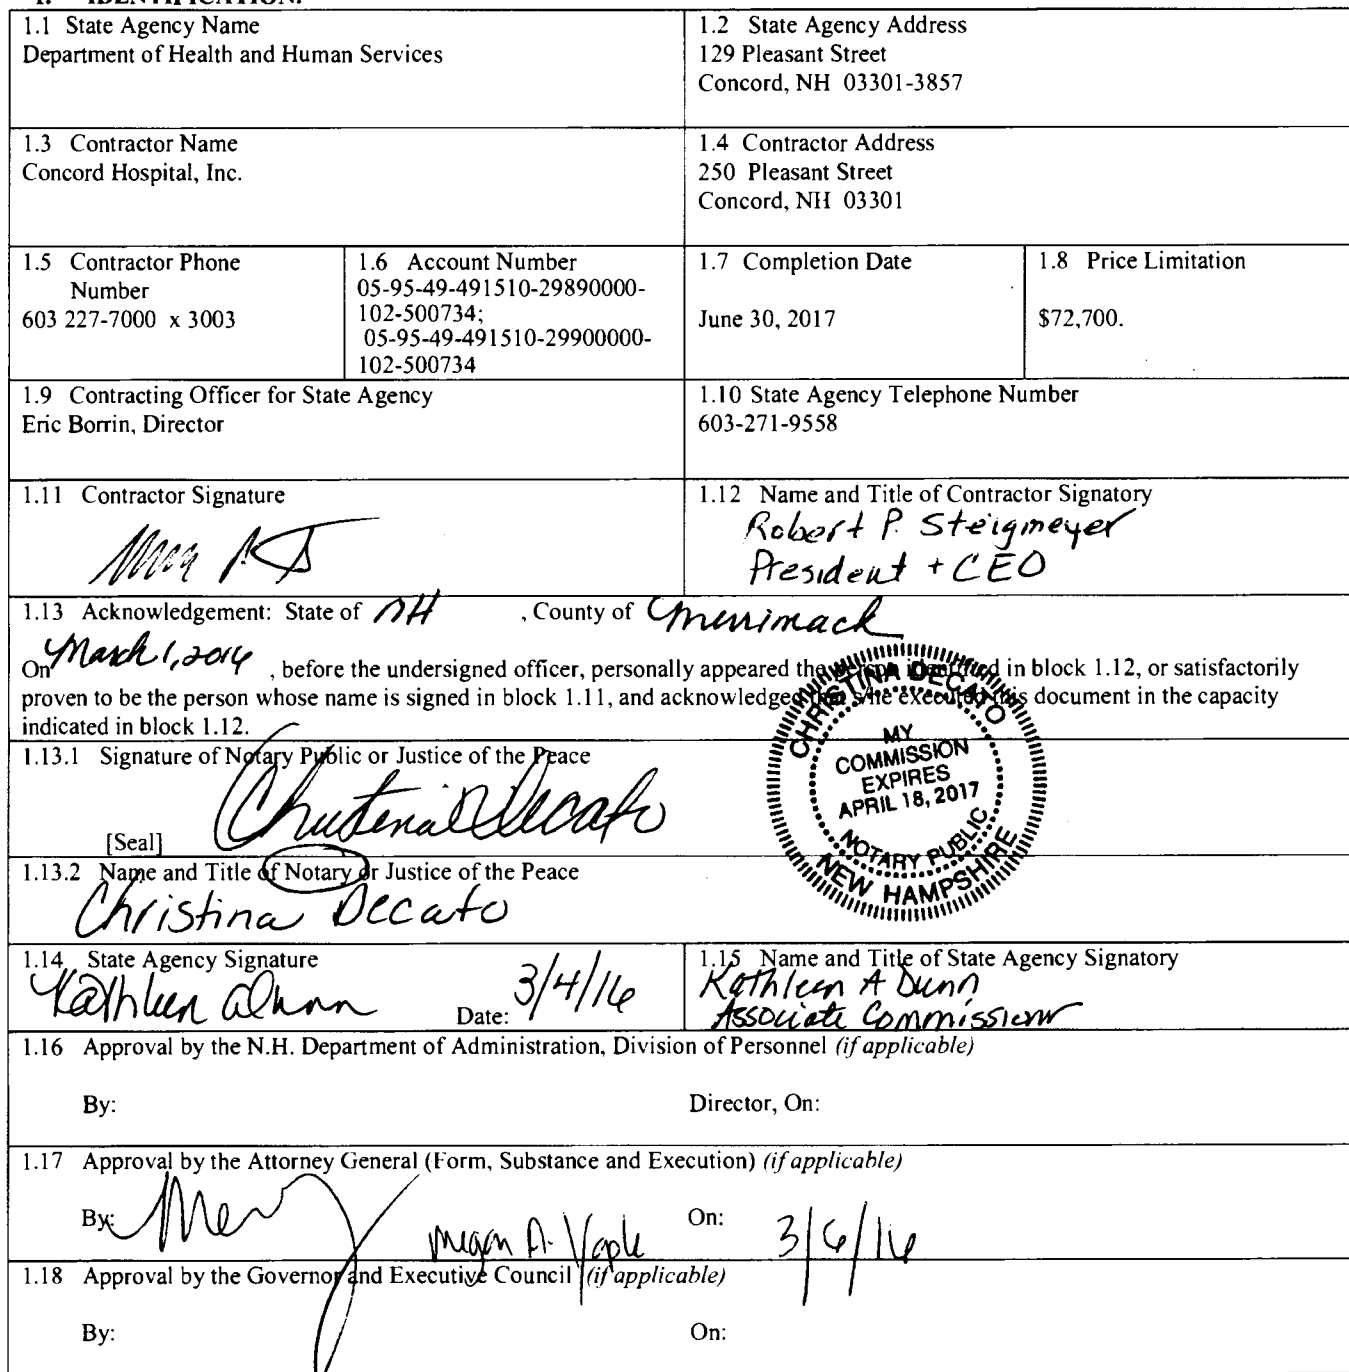 1. IDENTIFICATION.
1.1 State Agency Name
Department of Health and Human Services
1.2 State Agency Address
129 Pleasant Street
Concord, NH 03301-3857
1.3 Contractor Name
Concord Hospital, Inc.
1.4 Contractor Address
250 Pleasant Street
Concord, NH 03301
1.5 Contractor Phone
Number
603 227-7000 x 3003
1.6 Account Number
05-95-49-491510-29890000-
102-500734;
05-95-49-491510-29900000-
102-500734
1.7 Completion Date
June 30, 2017
1.8 Price Limitation
$72,700.
1.9 Contracting Officer for State Agency
Eric Borrin, Director
1.10 State Agency Telephone Number
603-271-9558
1.11 Contractor Signature
1.12 Name and Title of Contractor Signatory
Robert P. Steigmeyer
President + CEO
1.13 Acknowledgement: State of NH , County of Merrimack
On March 1, 2016 , before the undersigned officer, personally appeared the person identified in block 1.12, or satisfactorily
proven to be the person whose name is signed in block 1.11, and acknowledged that s/he executed this document in the capacity
indicated in block 1.12.
CHRISTINA DECATO
MY
COMMISSION
EXPIRES
APRIL 18, 2017
NOTARY PUBLIC
NEW HAMPSHIRE
1.13.1 Signature of Notary Public or Justice of the Peace
Christina Decato
[Seal]
1.13.2 Name and Title of Notary or Justice of the Peace
Christina Decato
1.14 State Agency Signature
Kathleen A Dunn
Date: 3/4/16
1.15 Name and Title of State Agency Signatory
Kathleen A Dunn
Associate Commissioner
1.16 Approval by the N.H. Department of Administration, Division of Personnel (if applicable)
By: Director, On:
1.17 Approval by the Attorney General (Form, Substance and Execution) (if applicable)
By: Megan A. Yaple On: 3/6/16
1.18 Approval by the Governor and Executive Council (if applicable)
By: On: